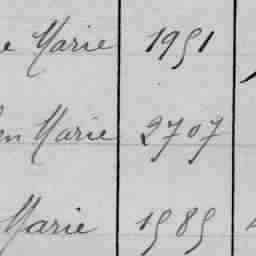 e Marie 1951
en Marie 2707
Marie 1585